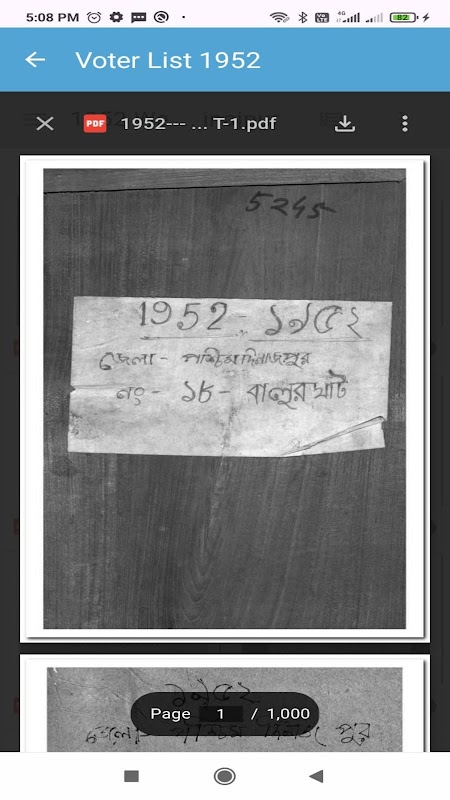 5:08 PM
82
Voter List 1952
PDF 1952--- ... T-1.pdf
5245
1952 - ১৯৫২
জেলা - পশ্চিমদিনাজপুর
নং - ১৮ - বালুরঘাট
১৯৫২
Page 1 / 1,000
জেলা পশ্চিম দিনাজপুর